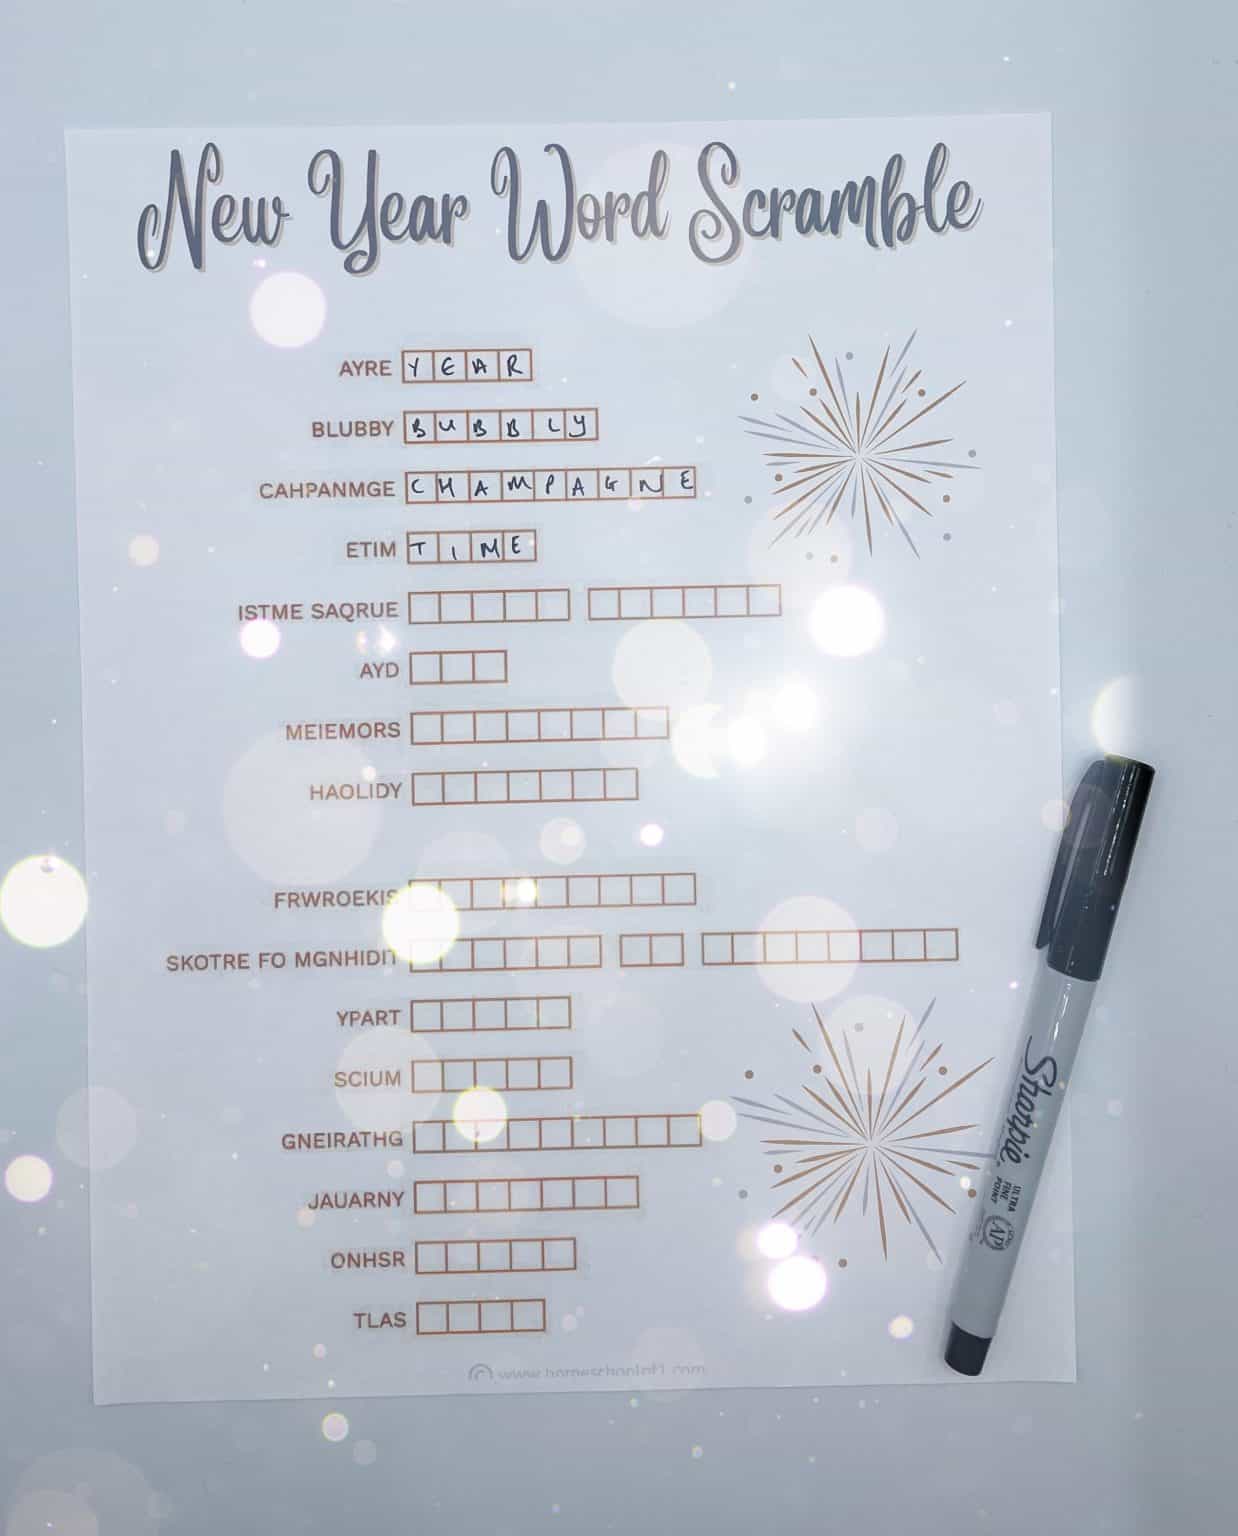 New Year Word Scramble
AYRE YEAR
BLUBBY BUBBLY
CAHPANMGE CHAMPAGNE
ETIM TIME
ISTME SAQRUE
AYD
MEIEMORS
HAOLIDY
FRWROEKIS
SKOTRE FO MGNHIDIT
YPART
SCIUM
GNEIRATHG
JAUARNY
ONHSR
TLAS
Sharpie
ULTRA
FINE
POINT
AP